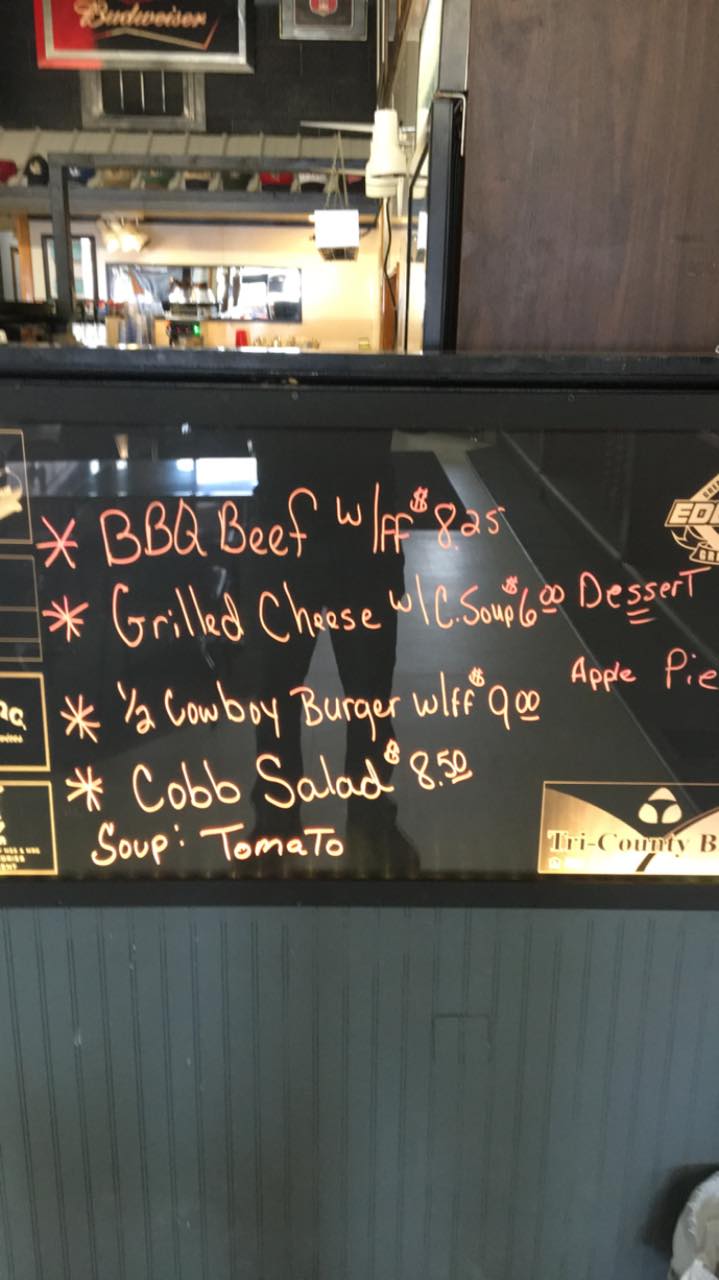 Budweiser
* BBQ Beef w/ff $8.25
* Grilled Cheese w/C.Soup $6.00
* 1/2 Cowboy Burger w/ff $9.00
* Cobb Salad $8.50
Soup: Tomato
Dessert
Apple Pie
Tri-County B